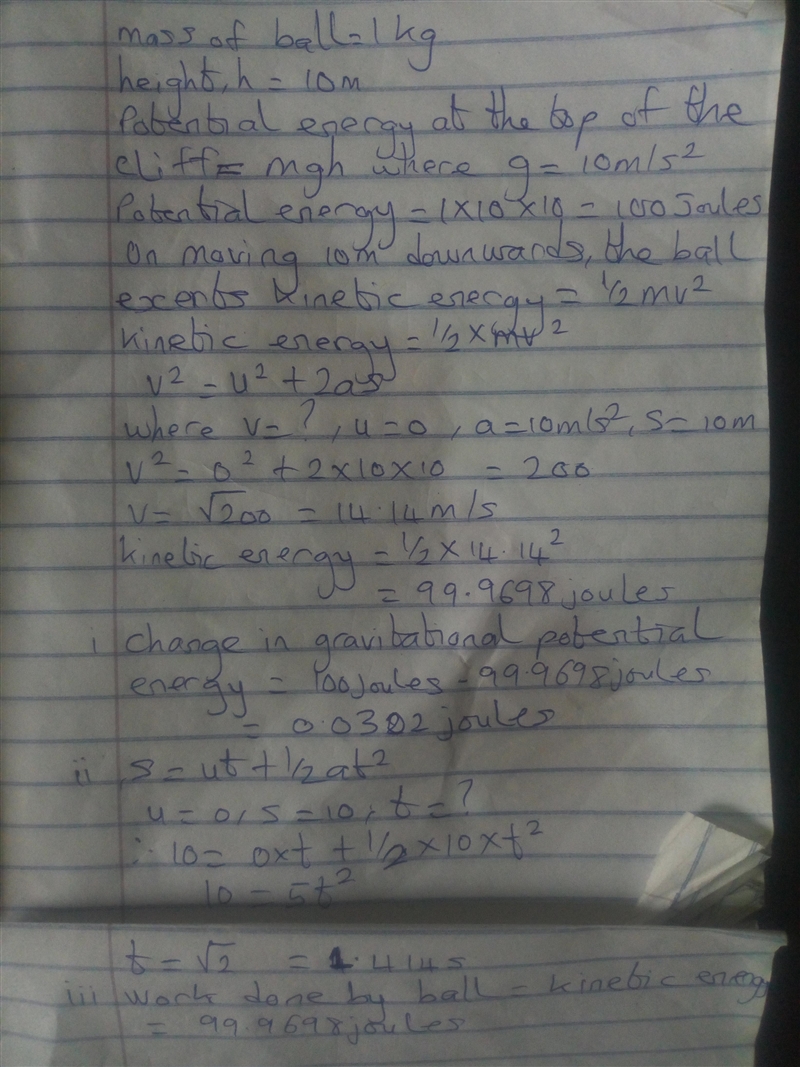 mass of ball = 1kg
height, h = 10m
Potential energy at the top of the
cliff = mgh where g = 10m/s²
Potential energy = 1×10×10 = 100 Joules
On moving 10m downwards, the ball
excerts kinetic energy = ½mv²
kinetic energy = ½ × mv²
v² = u² + 2as
where v = ?, u = 0, a = 10m/s², s = 10m
v² = 0² + 2×10×10 = 200
v = √200 = 14.14m/s
kinetic energy = ½ × 14.14²
= 99.9698 joules
i change in gravitational potential
energy = 100joules - 99.9698joules
= 0.0302 joules
ii s = ut + ½at²
u = 0, s = 10, t = ?
∴ 10 = 0×t + ½ × 10 × t²
10 = 5t²
t = √2 = 1.414s
iii work done by ball = kinetic energy
= 99.9698joules